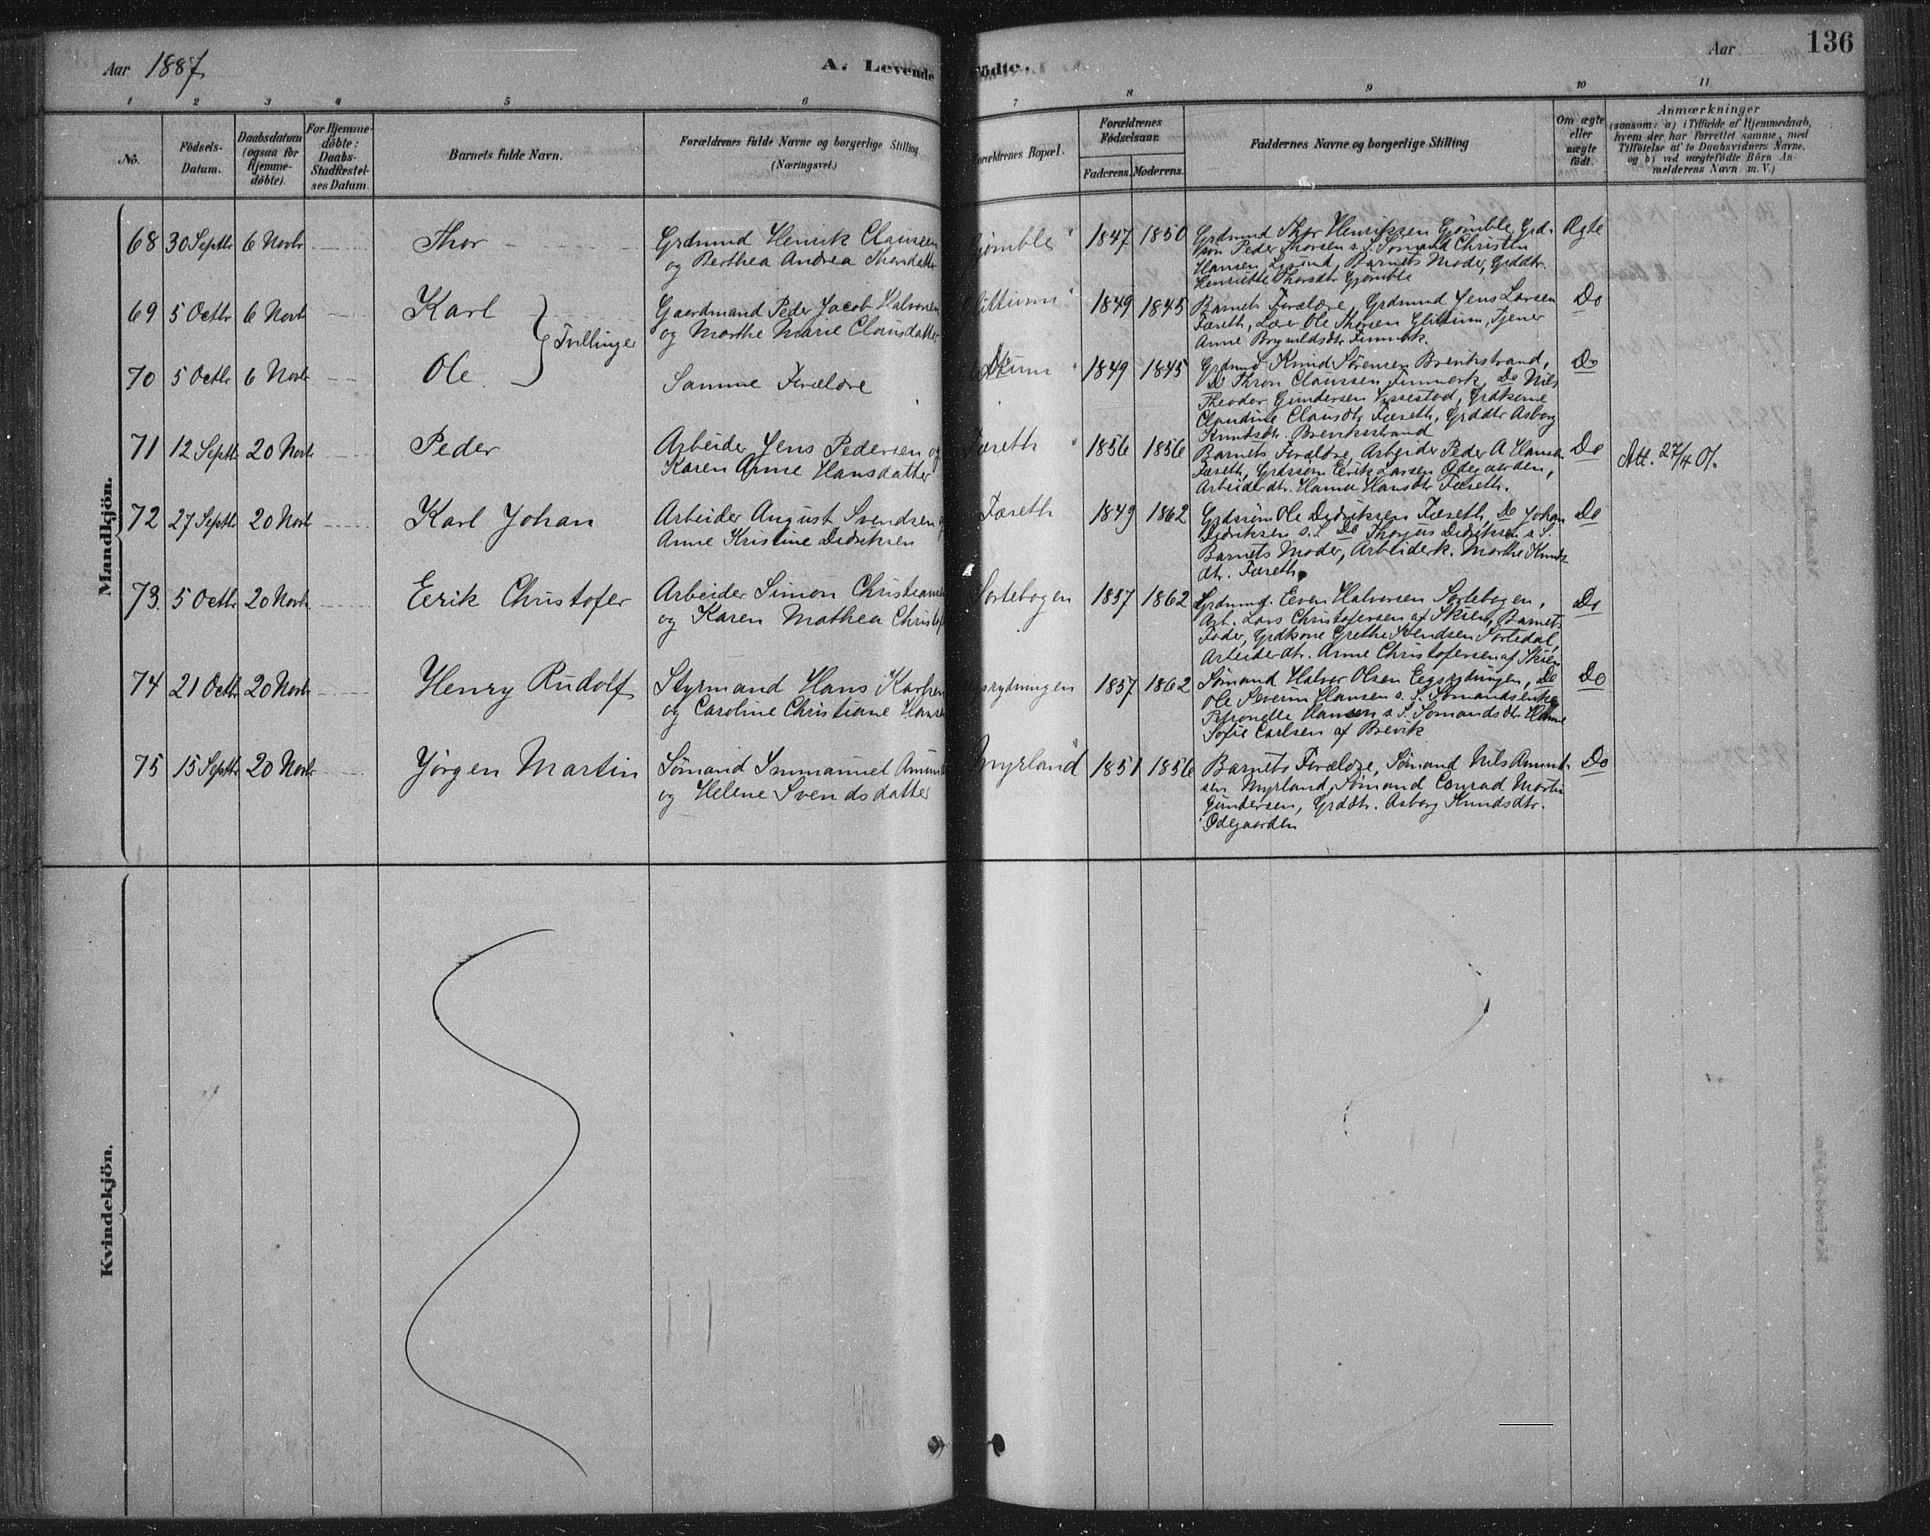 Aar 1887
A. Levende Födte.
Aar
136
1
2
3
4
5
6
7
8
9
10
11
No.
Födsels-Datum.
Daabsdatum (ogsaa for Hjemme-döbte).
For Hjemme-döbte: Daabs-Stadfæstel-ses Datum.
Barnets fulde Navn.
Forældrenes fulde Navne og borgerlige Stilling (Næringsvei.)
Forældrenes Bopæl.
Forældrenes Födselsaar.
Faderens.
Moderens.
Faddernes Navne og borgerlige Stilling
Om ægte eller uægte födt.
Anmærkninger
(saasom: a) i Tilfælde af Hjemmedaab,
hvem der har forrettet samme, med
Tilföielse af to Daabsvidners Navne,
og b) ved uægtefödte Börn An-
melderens Navn m. V.)
Mandkjön.
68 30 Septbr 6 Novbr Thor
Grdmand Henrik Claussen
og Berthea Andrea Thorsdatter
Gjömble 1847 1850
Grdmand Thor Henriksen Gjömble, Grd-
søn Peder Thorsen s. S. Sømand Christen
Hansen, Barnets Moder, Grddtr.
Henriette Thorsdtr Gjömble
Ægte
69 5 Octbr 6 Novbr Karl
Tvillinger
Gaardmand Peder Jacob Halvorsen
og Marthe Marie Clausdatter
1849 1845
Barnets Forældre, Grdmand Jens Larsen
Fæseth, Lærer Ole Thorsen, Tjener
Anne
Do
70 5 Octbr 6 Novbr Ole
Samme Forældre
1849 1845
Grdmand Knud Sørensen Brevikstrand,
Do Thron Claussen, Do Nils
Theodor Gundersen, Grdkone
Claudine Clausdtr Fæseth, Grddtr Asborg
Knudsdtr. Brevikstrand
Do
71 12 Septbr 20 Novbr Peder
Arbeider Jens Pedersen og
Karen Anne Hansdatter
Fæseth 1856 1856
Barnets Forældre, Arbeider Peder A Hansen
Fæseth, Grdssøn Eerik Larsen Ødegaarden,
Arbeiderdtr. Hanna Hansdtr Fæseth.
Do
Att. 27/4 01.
72 27 Septbr 20 Novbr Karl Johan
Arbeider August Svendsen
Anne Kristine Didriksen
Fæseth 1849 1862
Grdssøn Ole Didriksen Fæseth, Do Johan
Didriksen s. S. Do Thorjus Didriksen s. S.
Barnets Moder, Arbeiderk. Marthe Knuds
dtr. Fæseth
Do
73. 5 Octbr 20 Novbr Eerik Christofer
Arbeider Simon Christian
og Karen Mathea
Sortebogen 1857 1862
Grdmand. Even Halvorsen Sortebogen,
Arb. Lars Christofersen af Skien, Barnets
Fader, Grdkone Grethe Svendsen Sortedal,
Arbeiderdtr. Anne Christofersen af Skien
Do
74 21 Octbr 20 Novbr Henry Rudolf
Styrmand Hans Karlsen
og Caroline Christiane
1857 1862
Sømand Halvor Olsen Eegsrydningen, Do
Ole Severin Hansen s. S. Sømandsenke
Petronelle Hansen s. S. Sømandsdtr Hanne
Sofie Carlsen af Brevik
Do
75 15 Septbr 20 Novbr Jörgen Martin
Sømand Immanuel
og Helene Svendsdatter
Myrland 1851 1856
Barnets Forældre, Sømand Nils Amund-
sen Myrland, Sømand Conrad Martin
Gundersen, Grddtr. Asborg Knudsdtr.
Ødegaarden
Do
Kvindekjön.